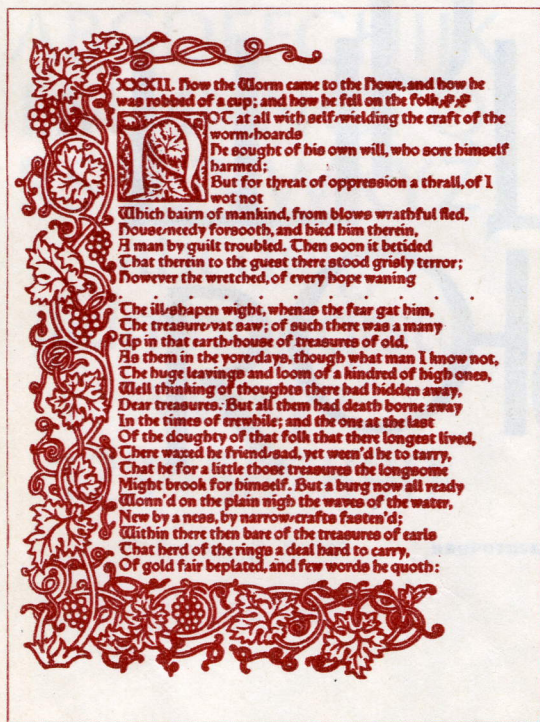 XXXII. How the Worm came to the Howe, and how he
was robbed of a cup; and how he fell on the folk
NOT at all with self-wielding the craft of the
worm-hoards
He sought of his own will, who sore himself
harmed;
But for threat of oppression a thrall, of I
wot not
Which bairn of mankind, from blows wrathful fled,
House-needy forsooth, and hied him therein,
A man by guilt troubled. Then soon it betided
That therein to the guest there stood grisly terror;
However the wretched, of every hope waning
. . . . . . . . . . . .
The ill-shapen wight, whenas the fear gat him,
The treasure-vat saw; of such there was a many
Up in that earth-house of treasures of old,
As them in the yore-days, though what man I know not,
The huge leavings and loom of a kindred of high ones,
Well thinking of thoughts there had hidden away,
Dear treasures. But all them had death borne away
In the times of erewhile; and the one at the last
Of the doughty of that folk that there longest lived,
There waxed he friend-sad, yet ween'd he to tarry,
That he for a little those treasures the longsome
Might brook for himself. But a burg now all ready
Wonn'd on the plain nigh the waves of the water,
New by a ness, by narrow-crafts fasten'd;
Within there then bare of the treasures of earls
That herd of the rings a deal hard to carry,
Of gold fair beplated, and few words he quoth: